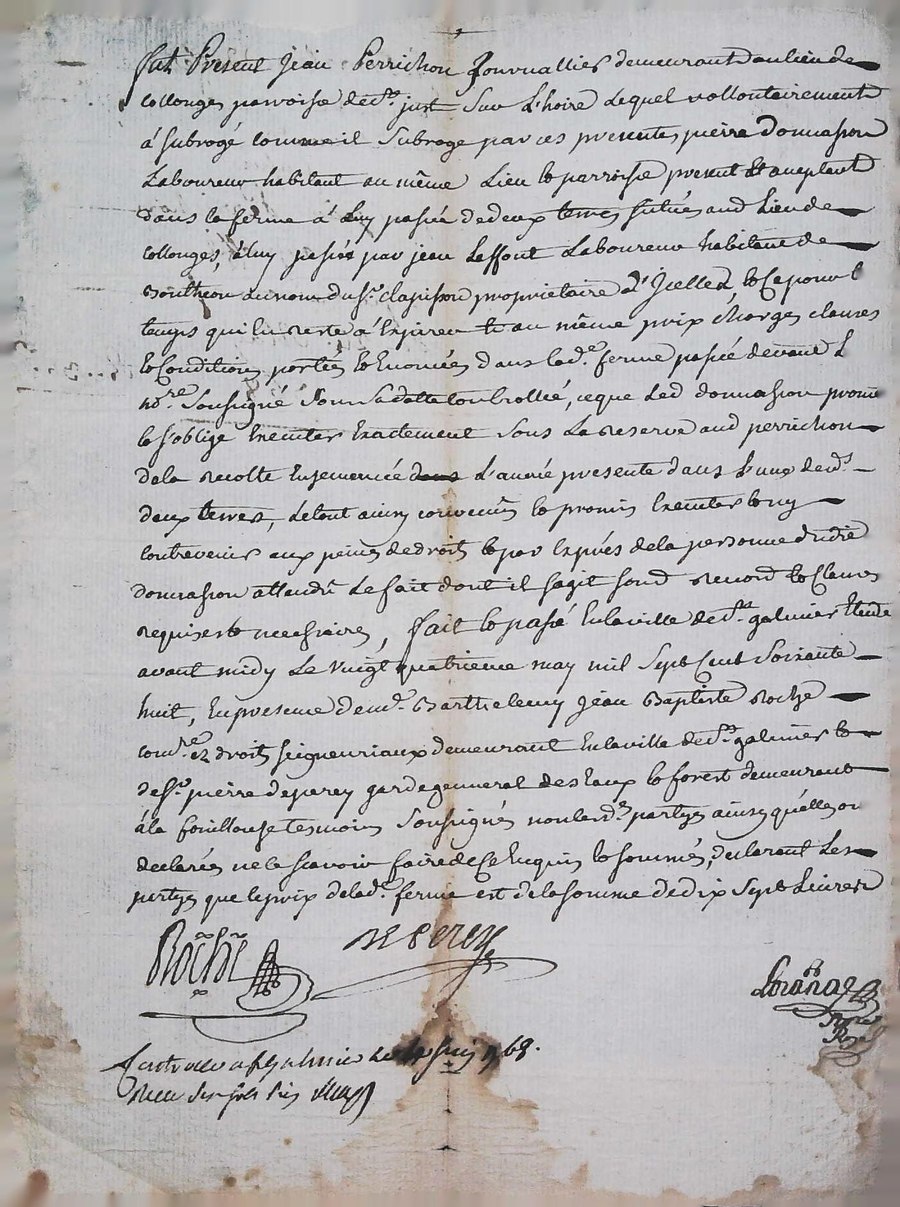 fut Present Jean Perrichon Journallier demeurant au lieu de
Collonges parroisse de St. just Sur L'hoire Lequel vollontairement
á subrogé comme il Subroge par ces presentes pierre Donnasson
Laboureur habitant au même Lieu et parroisse present et aceptant
dans la ferme á Luy passée de deux terres situées aud Lieu de
Collonges, á luy passée par jean Laffont Laboureur habitant de
Bouthеon au nom du Sr. Clapisson proprietaire d'Icelles, et Ce pour l
temps qui lui reste á Expirer et au même prix Charges clauses
et Conditions portées et Enoncées dans lade. ferme passée devant L
nore. Soussigné Sous Sa datte Controllée, ce que led donnasson promet
et s'oblige Executer Exactement Sous La reserve aud perrichon
de la recolte Ensemencée dans L'année presente dans L'une desds.
deux terres, le tout ainsy convenu et promis Executer et ny
contrevenir aux peines de droit et par Exprés de la personne dudit
donnasson attendu Le fait dont il s'agit sond renond et Clauses
requises et necessaires, fait et passé En la ville de St. galmier Etude
avant midy Le vingt quatrieme may mil Sept Cent Soixante
huit, En presence de mr. Barthelemy Jean Baptiste Roche
comre. ez droits seigneuriaux demeurant En la ville de St. galmier et
de Sr. pierre deperey garde general des Eaux et forest demeurant
á la fouillouse temoins Soussignés non lesds. partyes ainsy quélles on
declarées ne le scavoir faire de ce Enquis et sommés, declarant Les
partyes que le prix de lade. ferme est de la somme de dix Sept Livres
Roche
DePerey
Controllé a St galmier Le juin 1768.
Reçu